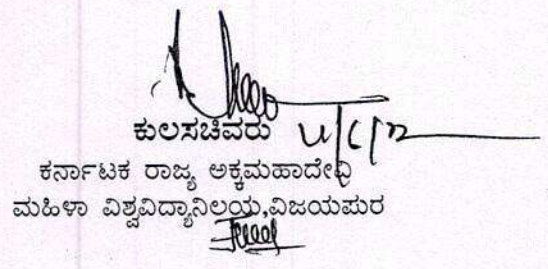 ಕುಲಸಚಿವರು
ಕರ್ನಾಟಕ ರಾಜ್ಯ ಅಕ್ಕಮಹಾದೇವಿ
ಮಹಿಳಾ ವಿಶ್ವವಿದ್ಯಾನಿಲಯ,ವಿಜಯಪುರ